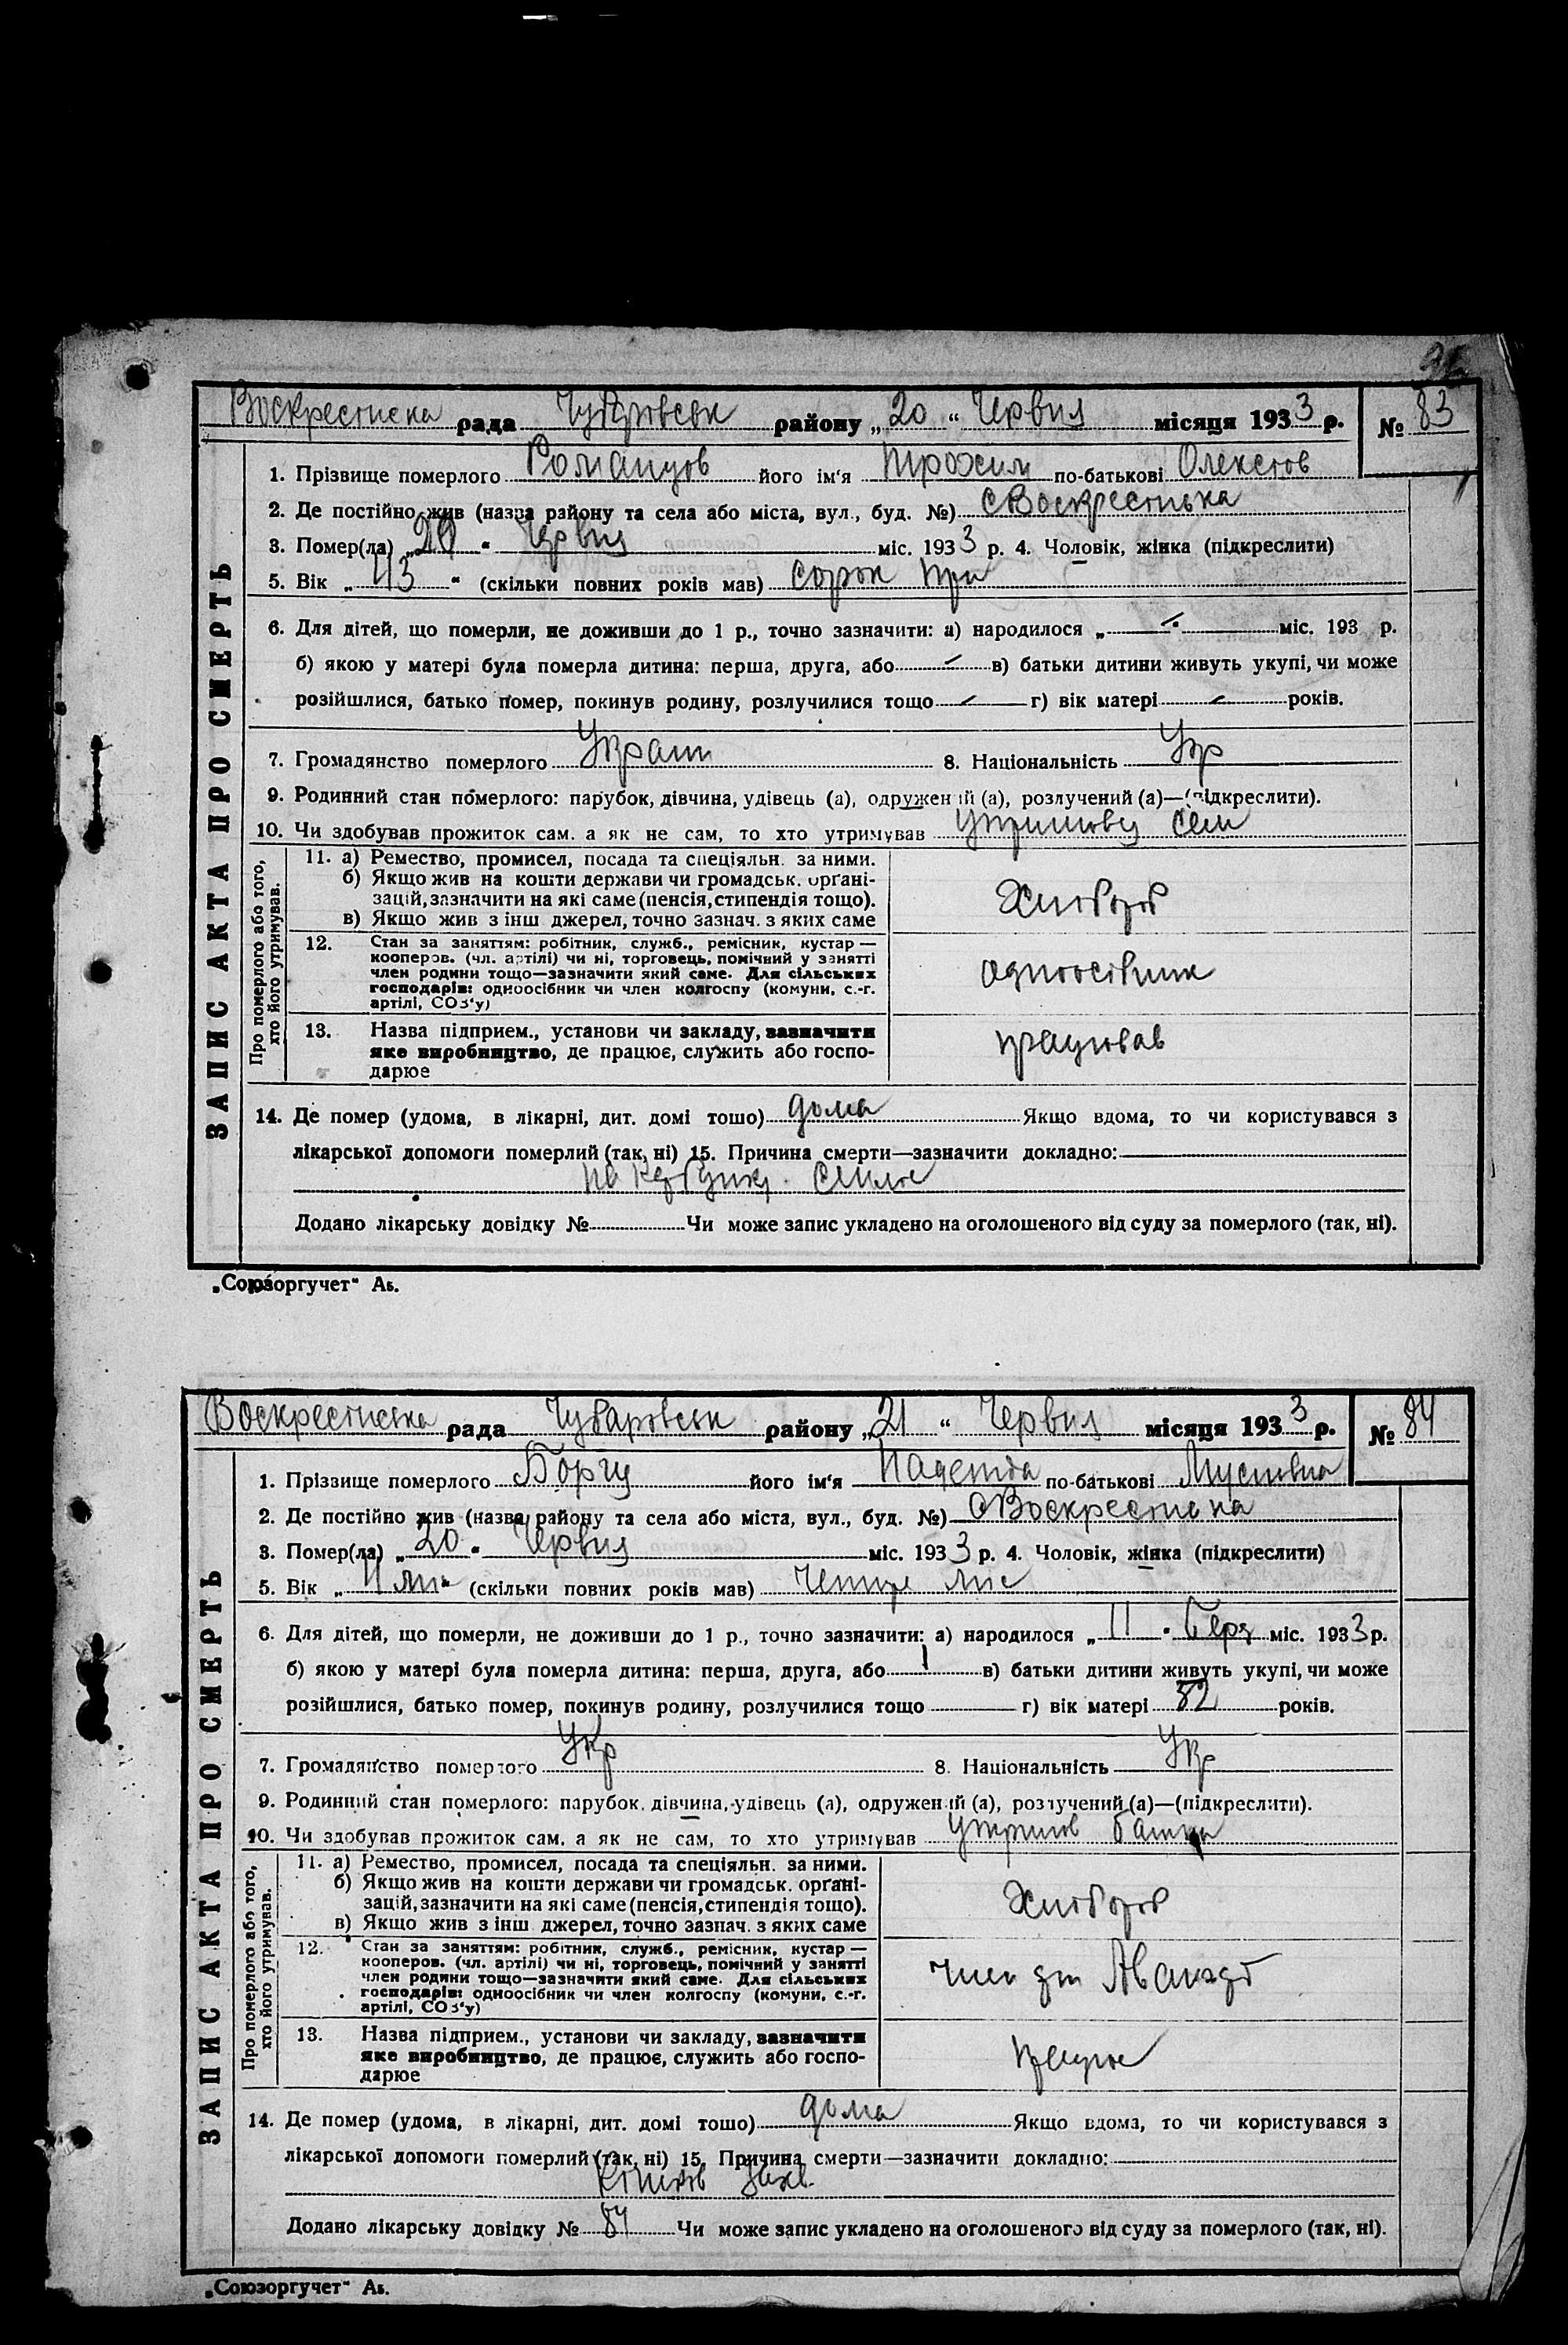 Воскрестиска рада Чубаровськ району „20“ Червня місяця 1933 р. № 83
ЗАПИС АКТА ПРО СМЕРТЬ
1. Прізвище померлого Романцов його ім'я Трохим по-батькові
2. Де постійно жив (назва району та села або міста, вул., буд. №)
3. Помер(ла) Червня міс. 1933 р. 4. Чоловік, жінка (підкреслити)
5. Вік „43“ (скільки повних років мав) сорок три
6. Для дітей, що померли, не доживши до 1 р., точно зазначити: а) народилося „ “ міс. 193 р.
б) якою у матері була померла дитина: перша, друга, або в) батьки дитини живуть укупі, чи може
розійшлися, батько помер, покинув родину, розлучилися тощо г) вік матері років.
7. Громадянство померлого 8. Національність Укр
9. Родинний стан померлого: парубок, дівчина, удівець (а), одружений (а), розлучений (а)—(підкреслити).
10. Чи здобував прожиток сам, а як не сам, то хто утримував
Про померлого або того, хто його утримував.
11. а) Ремество, промисел, посада та спеціяльн. за ними.
б) Якщо жив на кошти держави чи громадськ. органі-
зацій, зазначити на які саме (пенсія, стипендія тощо).
в) Якщо жив з інш джерел, точно зазнач. з яких саме
Хлібороб
12. Стан за заняттям: робітник, служб., ремісник, кустар —
кооперов. (чл. артілі) чи ні, торговець, помічний у занятті
член родини тощо—зазначити який саме. Для сільських
господарів: одноосібник чи член колгоспу (комуни, с.-г.
артілі, СОЗ'у)
одноосібник
13. Назва підприєм., установи чи закладу, зазначити
яке виробництво, де працює, служить або госпо-
дарює
працював
14. Де помер (удома, в лікарні, дит. домі тощо) дома Якщо вдома, то чи користувався з
лікарської допомоги померлий (так, ні) 15. Причина смерти—зазначити докладно:
Додано лікарську довідку № Чи може запис укладено на оголошеного від суду за померлого (так, ні).
„Союзоргучет“ Аб.
Воскрестиська рада Чубаровськ району „21“ Червня місяця 1933 р. № 84
ЗАПИС АКТА ПРО СМЕРТЬ
1. Прізвище померлого його ім'я по-батькові
2. Де постійно жив (назва району та села або міста, вул., буд. №)
3. Помер(ла) „20“ Червня міс. 1933 р. 4. Чоловік, жінка (підкреслити)
5. Вік (скільки повних років мав)
6. Для дітей, що померли, не доживши до 1 р., точно зазначити: а) народилося „11“ міс. 1933 р.
б) якою у матері була померла дитина: перша, друга, або в) батьки дитини живуть укупі, чи може
розійшлися, батько помер, покинув родину, розлучилися тощо г) вік матері років.
7. Громадянство померлого Укр 8. Національність Укр
9. Родинний стан померлого: парубок, дівчина, удівець (а), одружений (а), розлучений (а)—(підкреслити).
10. Чи здобував прожиток сам, а як не сам, то хто утримував
Про померлого або того, хто його утримував.
11. а) Ремество, промисел, посада та спеціяльн. за ними.
б) Якщо жив на кошти держави чи громадськ. органі-
зацій, зазначити на які саме (пенсія, стипендія тощо).
в) Якщо жив з інш джерел, точно зазнач. з яких саме
Хлібороб
12. Стан за заняттям: робітник, служб., ремісник, кустар —
кооперов. (чл. артілі) чи ні, торговець, помічний у занятті
член родини тощо—зазначити який саме. Для сільських
господарів: одноосібник чи член колгоспу (комуни, с.-г.
артілі, СОЗ'у)
13. Назва підприєм., установи чи закладу, зазначити
яке виробництво, де працює, служить або госпо-
дарює
працює
14. Де помер (удома, в лікарні, дит. домі тощо) дома Якщо вдома, то чи користувався з
лікарської допомоги померлий (так, ні) 15. Причина смерти—зазначити докладно:
Додано лікарську довідку № 84 Чи може запис укладено на оголошеного від суду за померлого (так, ні).
„Союзоргучет“ Аб.